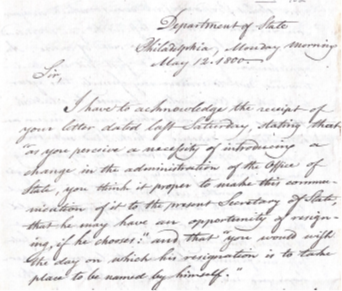 Department of State
Philadelphia, Monday morning
May 12. 1800.
Sir,
I have to acknowledge the receipt of
your letter dated last Saturday, stating that
"as you perceive a necessity of introducing a
change in the administration of the Office of
State, you think it proper to make this commu-
nication of it to the present Secretary of State,
that he may have an opportunity of resign-
ing, if he chooses:" and that "you would wish
the day on which his resignation is to take
place to be named by himself."